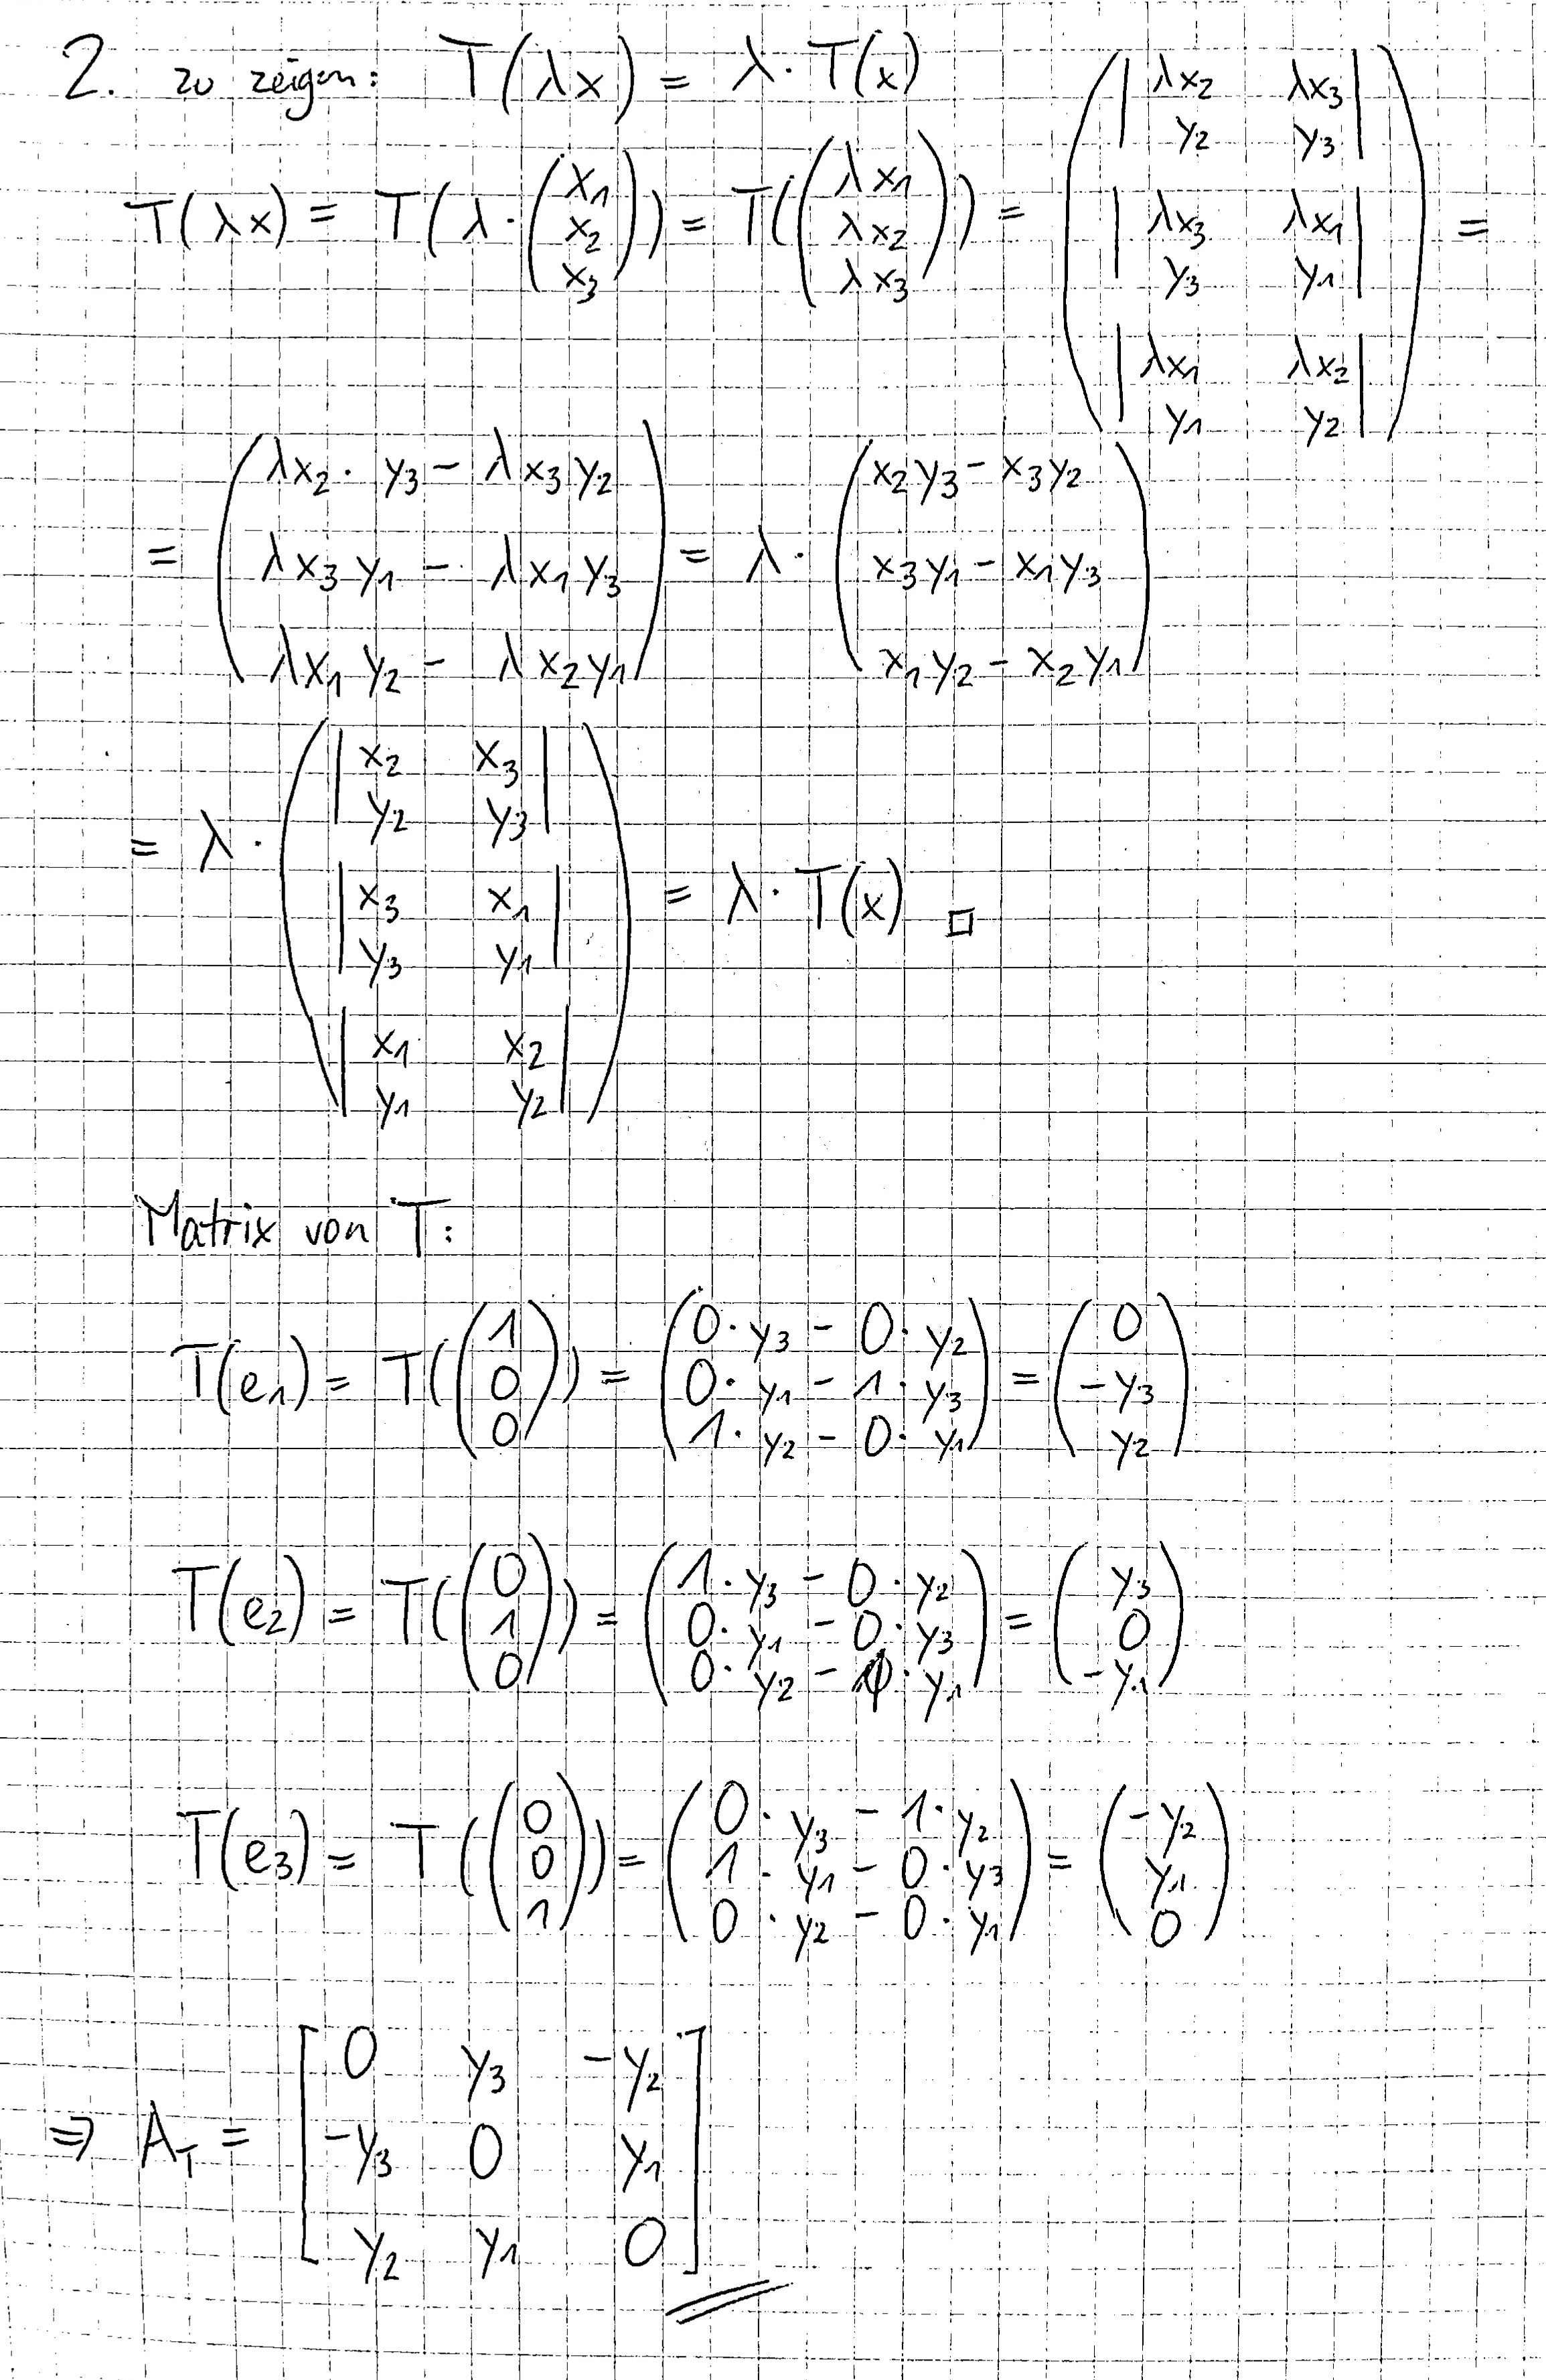 2. zu zeigen: T(λx) = λ · T(x)
T(λx) = T(λ · (x₁ x₂ x₃)) = T((λx₁ λx₂ λx₃)) = (|λx₂ λx₃ y₂ y₃| |λx₃ λx₁ y₃ y₁| |λx₁ λx₂ y₁ y₂|) =
= (λx₂ · y₃ − λx₃y₂
λx₃y₁ − λx₁y₃
λx₁y₂ − λx₂y₁) = λ · (x₂y₃ − x₃y₂
x₃y₁ − x₁y₃
x₁y₂ − x₂y₁)
= λ · (|x₂ x₃ y₂ y₃| |x₃ x₁ y₃ y₁| |x₁ x₂ y₁ y₂|) = λ · T(x) □
Matrix von T:
T(e₁) = T((1 0 0)) = (0·y₃ − 0·y₂
0·y₁ − 1·y₃
1·y₂ − 0·y₁) = (0 −y₃ y₂)
T(e₂) = T((0 1 0)) = (1·y₃ − 0·y₂
0·y₁ − 0·y₃
0·y₂ − 1·y₁) = (y₃ 0 −y₁)
T(e₃) = T((0 0 1)) = (0·y₃ − 1·y₂
1·y₁ − 0·y₃
0·y₂ − 0·y₁) = (−y₂ y₁ 0)
⇒ A_T = [0 y₃ −y₂
−y₃ 0 y₁
y₂ y₁ 0]